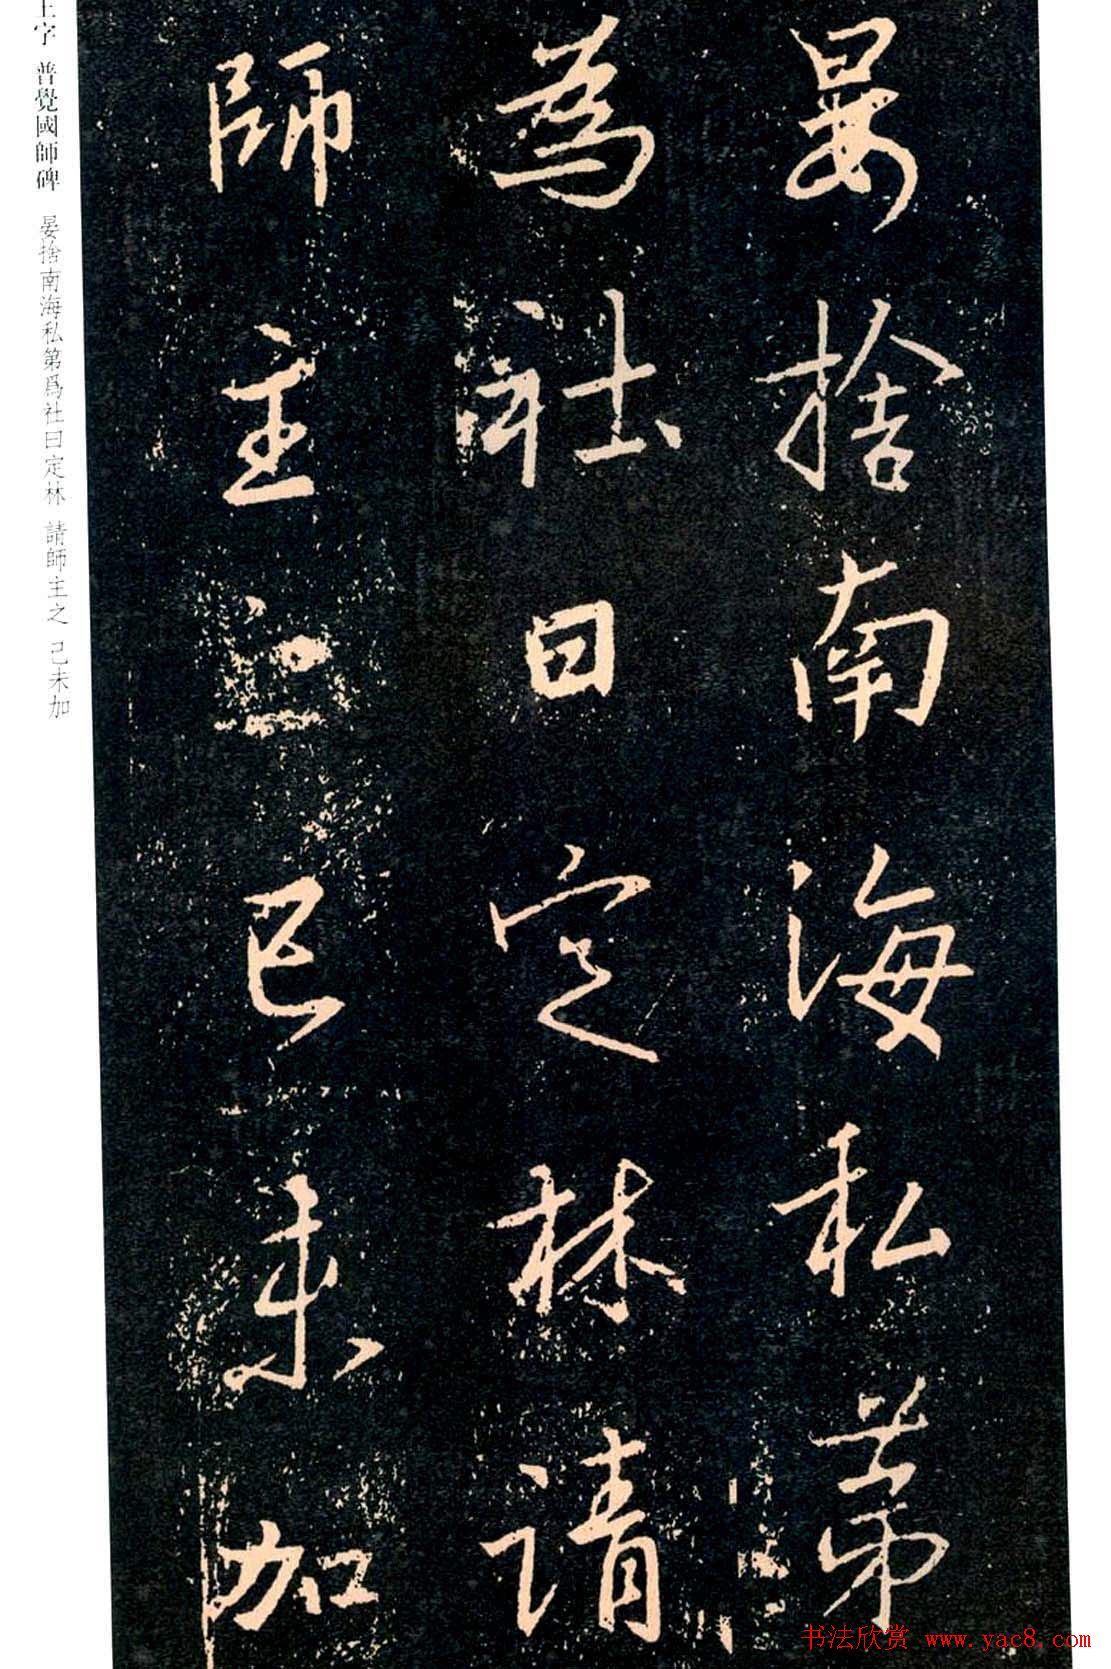 晏捨南海私第
為社曰定林請
師主之己未加
王字 普覺國師碑 晏捨南海私第爲社曰定林 請師主之 己未加
书法欣赏 www.yac8.com